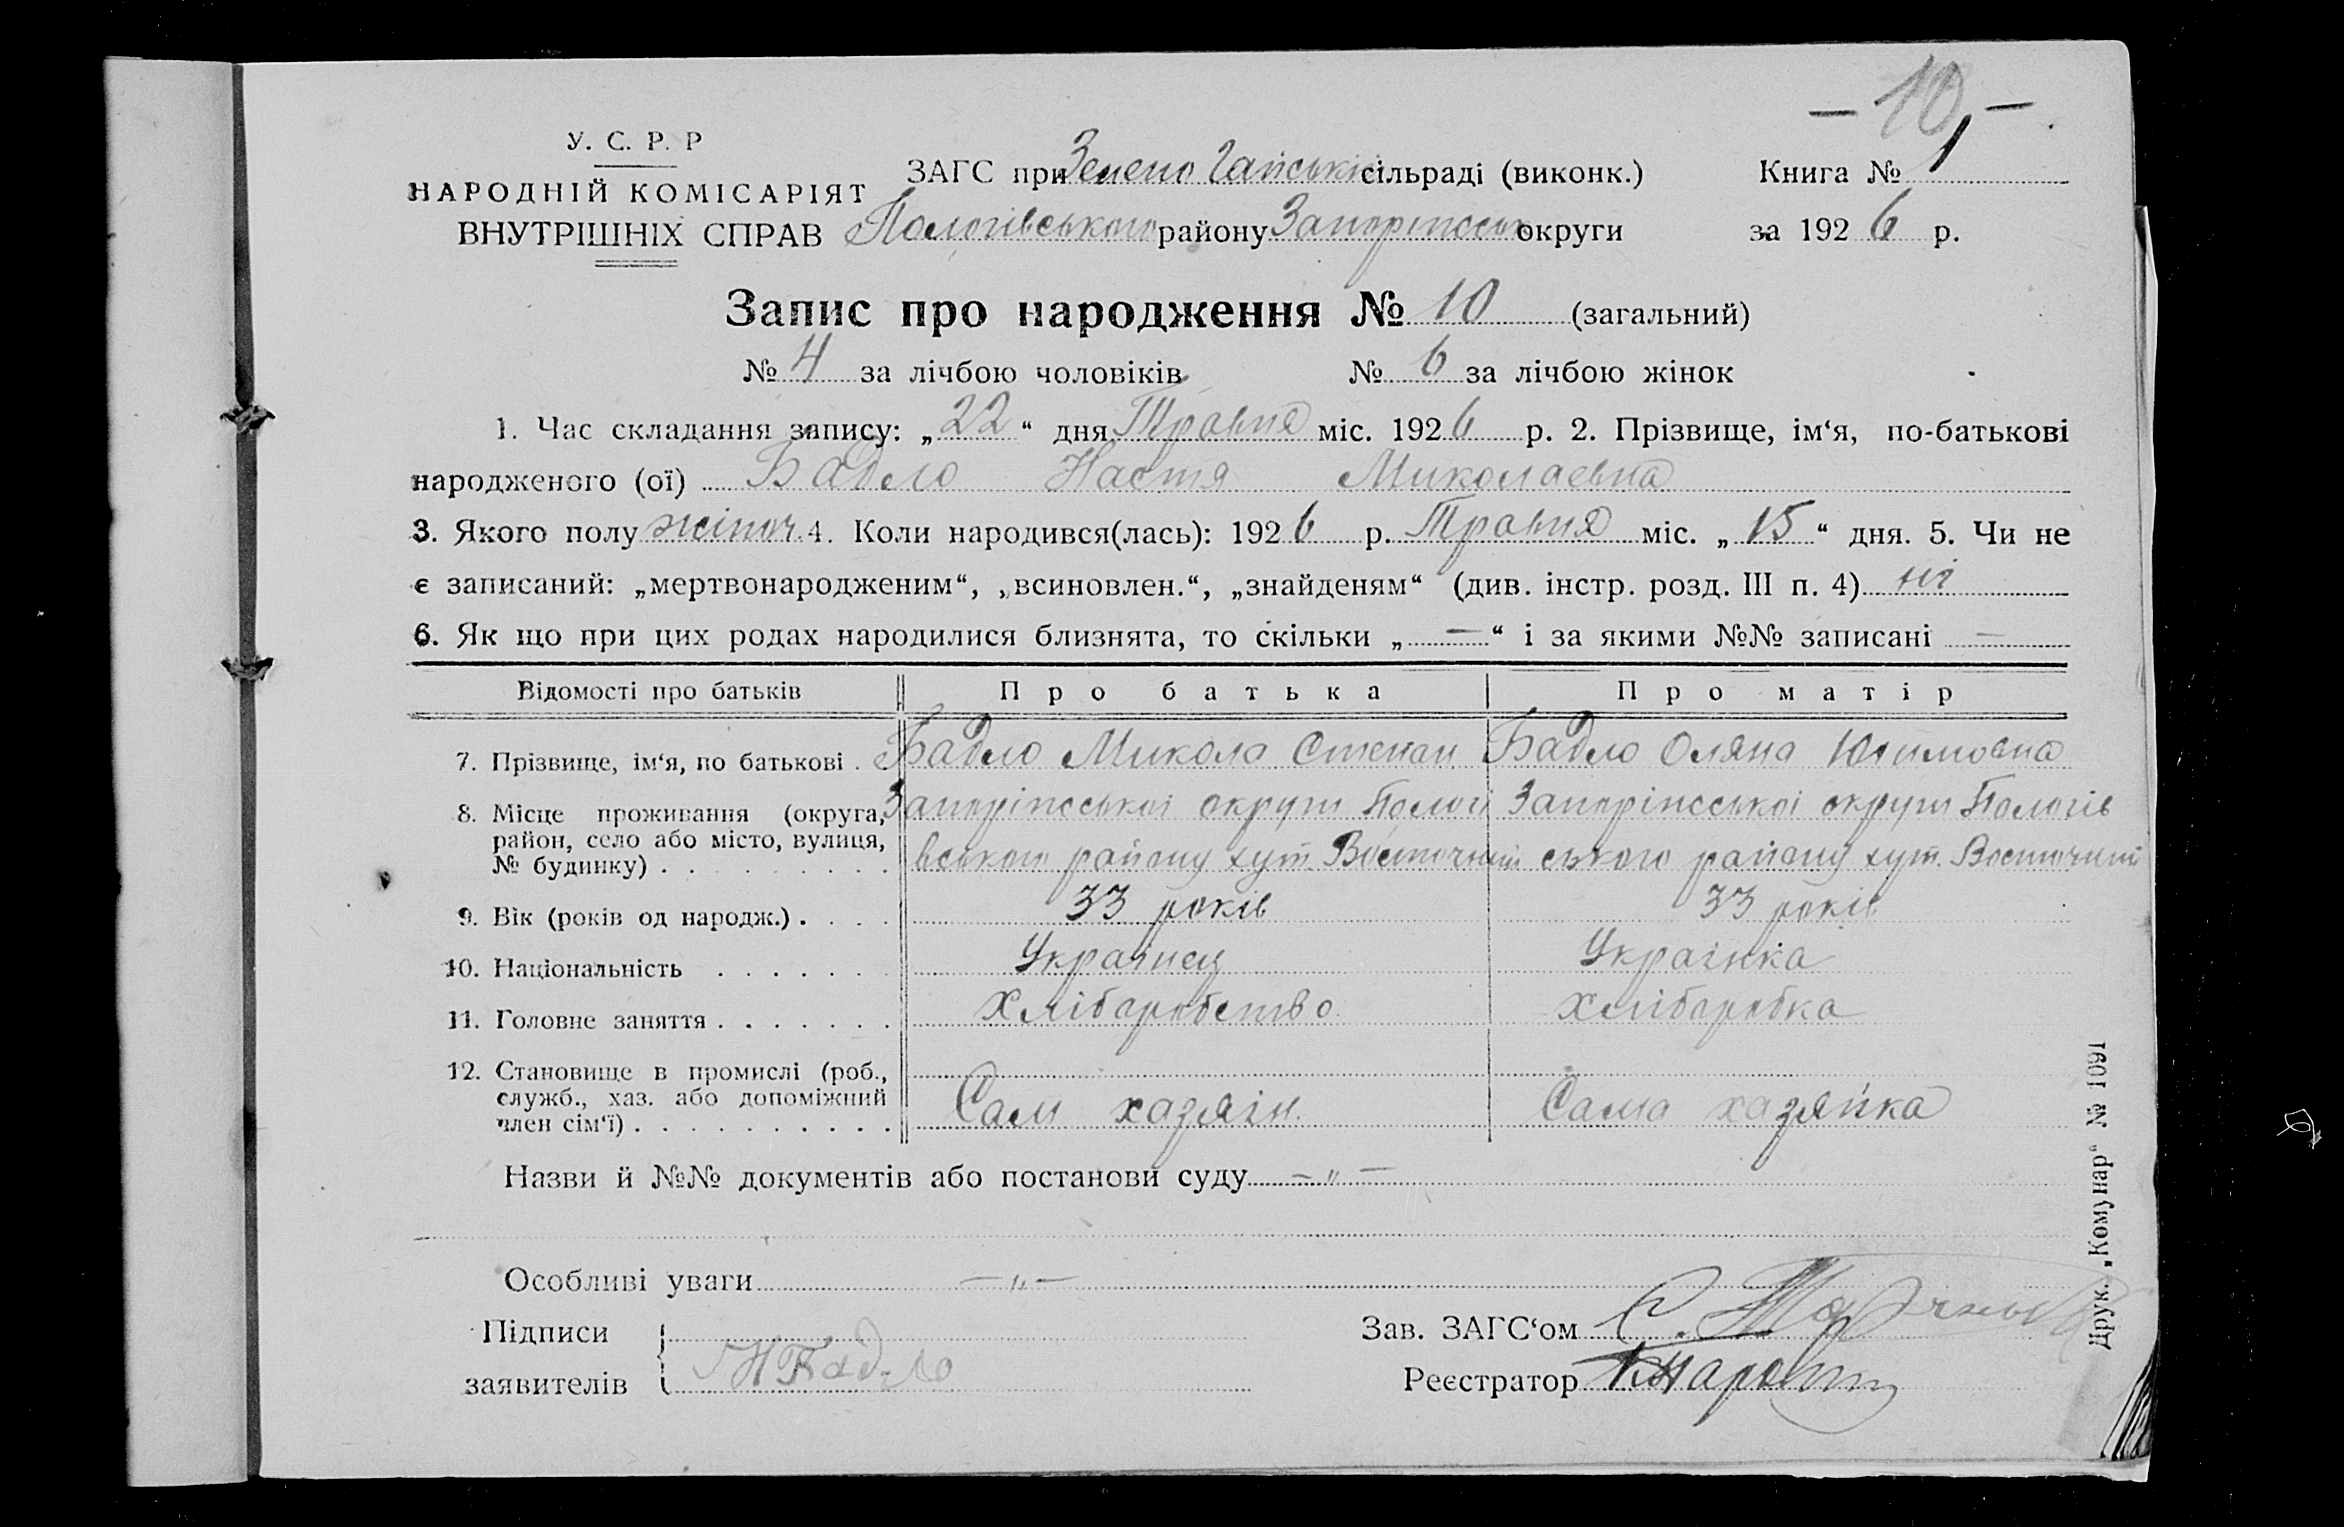 – 10 –
У. С. Р. Р
НАРОДНІЙ КОМІСАРІЯТ
ВНУТРІШНІХ СПРАВ
ЗАГС при Зелено Гайській сільраді (виконк.)
Пологівського району Запоріжської округи
Книга № 1
за 1926 р.
Запис про народження № 10 (загальний)
№ 4 за лічбою чоловіків № 6 за лічбою жінок
1. Час складання запису: „22“ дня Травня міс. 1926 р. 2. Прізвище, ім‘я, по-батькові
народженого (ої) Бадло Настя Миколаевна
3. Якого полу жіноч. 4. Коли народився(лась): 1926 р. Травня міс. „15“ дня. 5. Чи не
є записаний: „мертвонародженим“, „всиновлен.“, „знайденям“ (див. інстр. розд. III п. 4) ні
6. Як що при цих родах народилися близнята, то скільки „—“ і за якими №№ записані —
Відомості про батьків Про батька Про матір
7. Прізвище, ім‘я, по батькові . Бадло Микола Степан Бадло Оляна Юхимовна
8. Місце проживання (округа, Запоріжської округи Пологі Запоріжської округи Пологів
район, село або місто, вулиця,
№ будинку) . . . . . . . . . вського району хут. Восточний ського району хут. Восточний
9. Вік (років од народж.) . . . . 33 років 33 років
10. Національність . . . . . . . Украінец Украінка
11. Головне заняття . . . . . . . Хліборобство Хліборобка
12. Становище в промислі (роб.,
служб., хаз. або допоміжний Сам хазяін. Сама хазяйка
член сім‘ї) . . . . . . . . . .
Назви й №№ документів або постанови суду – „ –
Особливі уваги – „ –
Підписи
заявителів Н Бадло
Зав. ЗАГС‘ом
Реєстратор
Друк. „Комунар“ № 1091